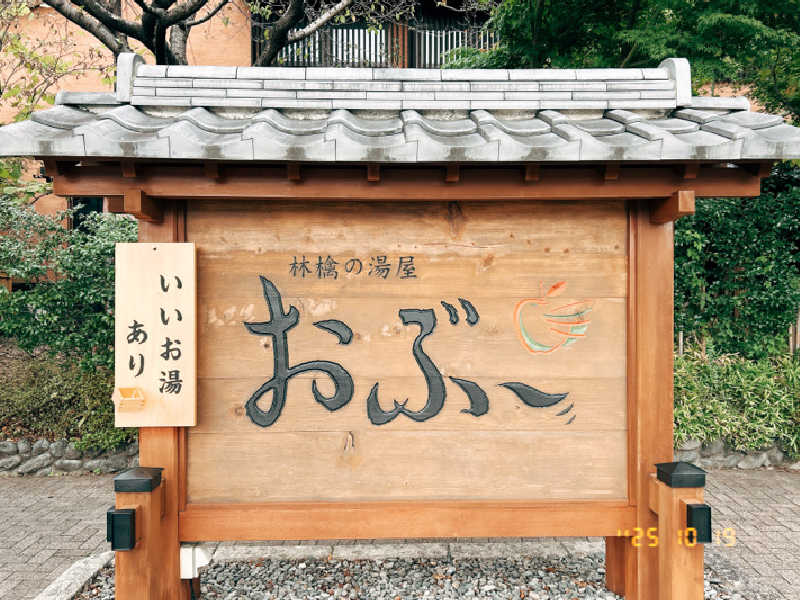 林檎の湯屋
おぶ～
いいお湯
あり
'25 10 19